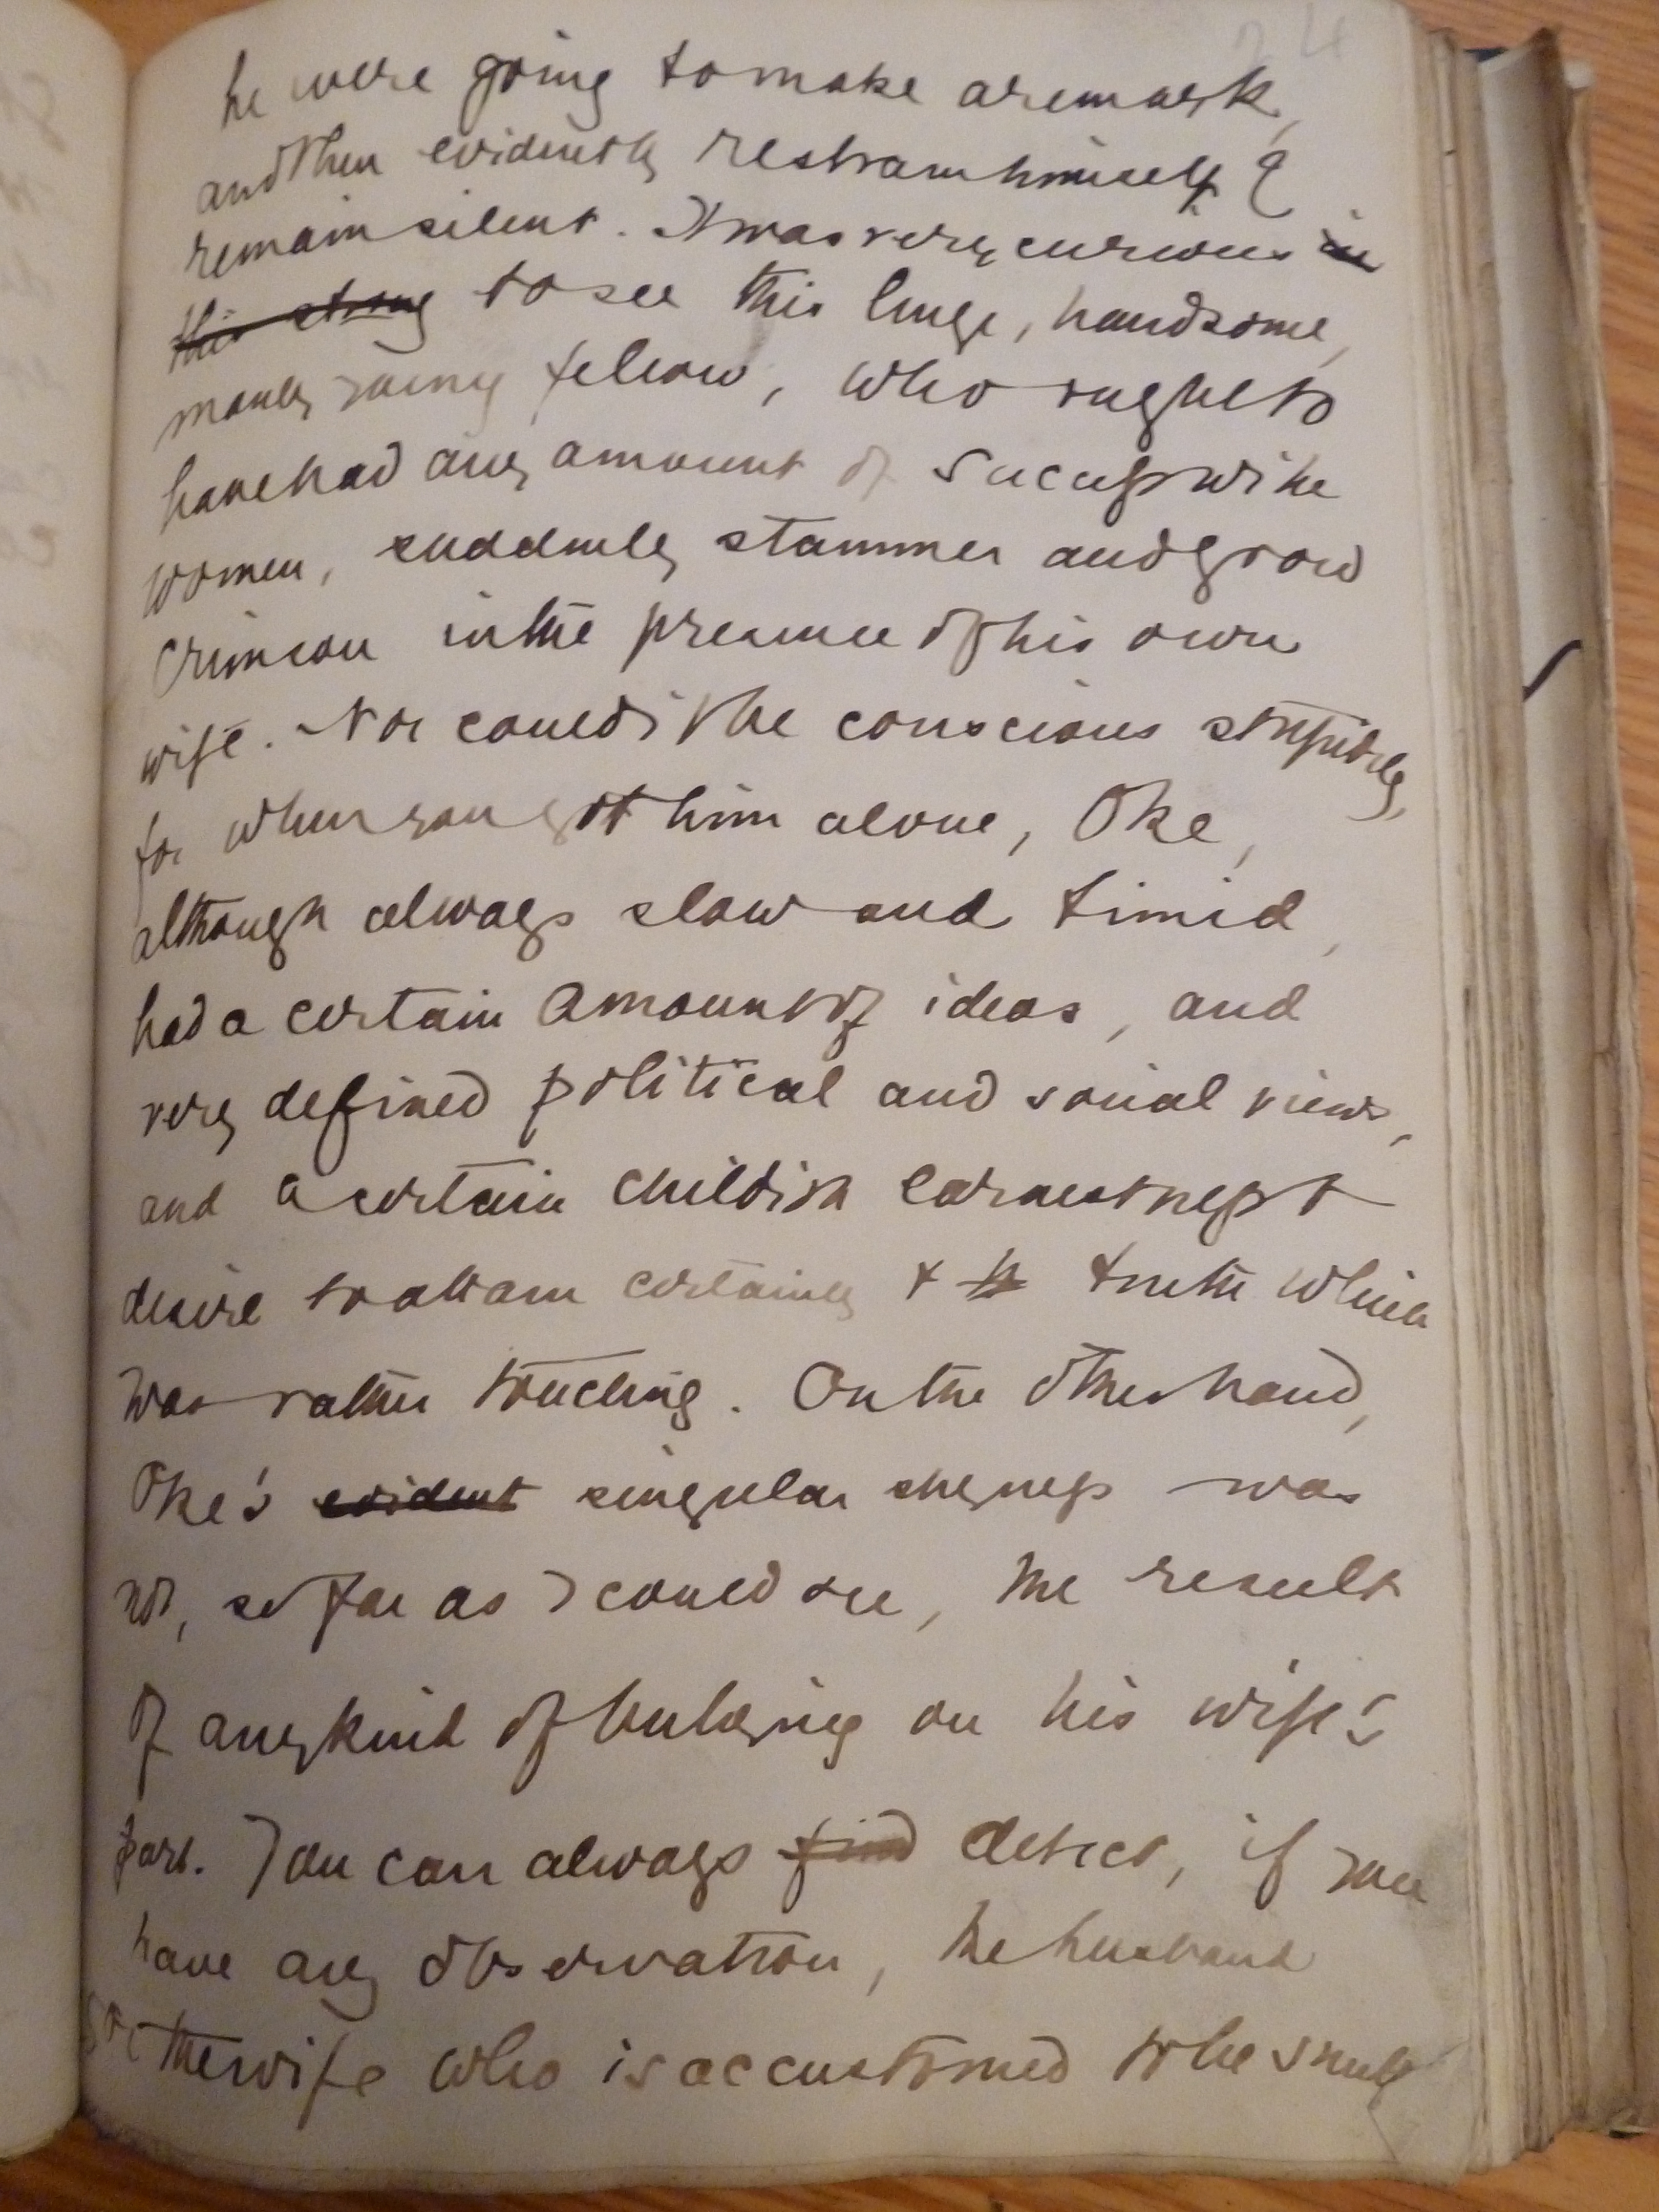 24
he were going to make a remark,
and then evidently restrain himself &
remain silent. It was very curious in
this strong to see this huge, handsome,
manly young fellow, who ought to
have had any amount of success with
women, suddenly stammer and grow
crimson in the presence of his own
wife. Nor could it be conscious stupidity,
for when you got him alone, Oke,
although always slow and timid,
had a certain amount of ideas, and
very defined political and social views,
and a certain childish earnestness &
desire to attain certainty & truth which
was rather touching. On the other hand,
Oke's evident singular shyness was
not, so far as I could see, the result
of any kind of bullying on his wife's
part. You can always find detect, if you
have any observation, the husband
or the wife who is accustomed to be snub